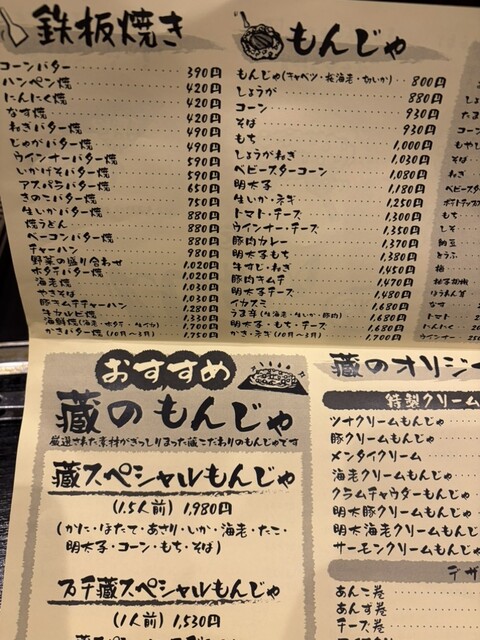 鉄板焼き
コーンバター 390円
ハンペン焼 420円
にんにく焼 420円
なす焼 420円
ねぎバター焼 490円
じゃがバター焼 490円
ウインナーバター焼 590円
いかげそバター焼 590円
アスパラバター焼 650円
きのこバター焼 750円
生いかバター焼 880円
焼うどん 880円
ベーコンバター焼 880円
チャーハン 980円
野菜の盛り合わせ 1,020円
ホタテバター焼 1,020円
海老焼 1,030円
やきそば 1,030円
豚キムチチャーハン 1,280円
牛カルビ焼 1,700円
海鮮焼(海老・ホタテ・生イカ) 1,700円
かきバター焼(10月〜3月) 1,750円
もんじゃ
もんじゃ(キャベツ・桜海老・切いか) 800円
しょうが 880円
コーン 930円
そば 930円
もち 1,000円
しょうがねぎ 1,030円
ベビースターコーン 1,080円
明太子 1,180円
生いか・ネギ 1,250円
トマト・チーズ 1,300円
ウインナー・チーズ 1,350円
豚肉カレー 1,370円
明太子もち 1,380円
牛すじ・ねぎ 1,450円
豚肉キムチ 1,470円
明太子チーズ 1,480円
イカスミ 1,680円
うま蔵(生海老・生いか・豚肉) 1,680円
明太子・もち・チーズ 1,680円
かき・ネギ(10月〜3月) 1,700円
コーン
もやし
そば
ねぎ
ベビースター
ポテトチップス
もち
しそ
納豆
とうふ
梅
ほうれん草
なす
トマト
にんにく
ウインナー
おすすめ
蔵のもんじゃ
厳選された素材がぎっしりつまった蔵こだわりのもんじゃです
蔵スペシャルもんじゃ
(1.5人前) 1,980円
(かに・ほたて・あさり・いか・海老・たこ・
明太子・コーン・もち・そば)
プチ蔵スペシャルもんじゃ
(1人前) 1,530円
蔵のオリジ
特製クリーム
ツナクリームもんじゃ
豚クリームもんじゃ
メンタイクリーム
海老クリームもんじゃ
クラムチャウダーもんじゃ
明太豚クリームもんじゃ
明太海老クリームもんじゃ
サーモンクリームもんじゃ
デザ
あんこ巻
あんず巻
チーズ巻